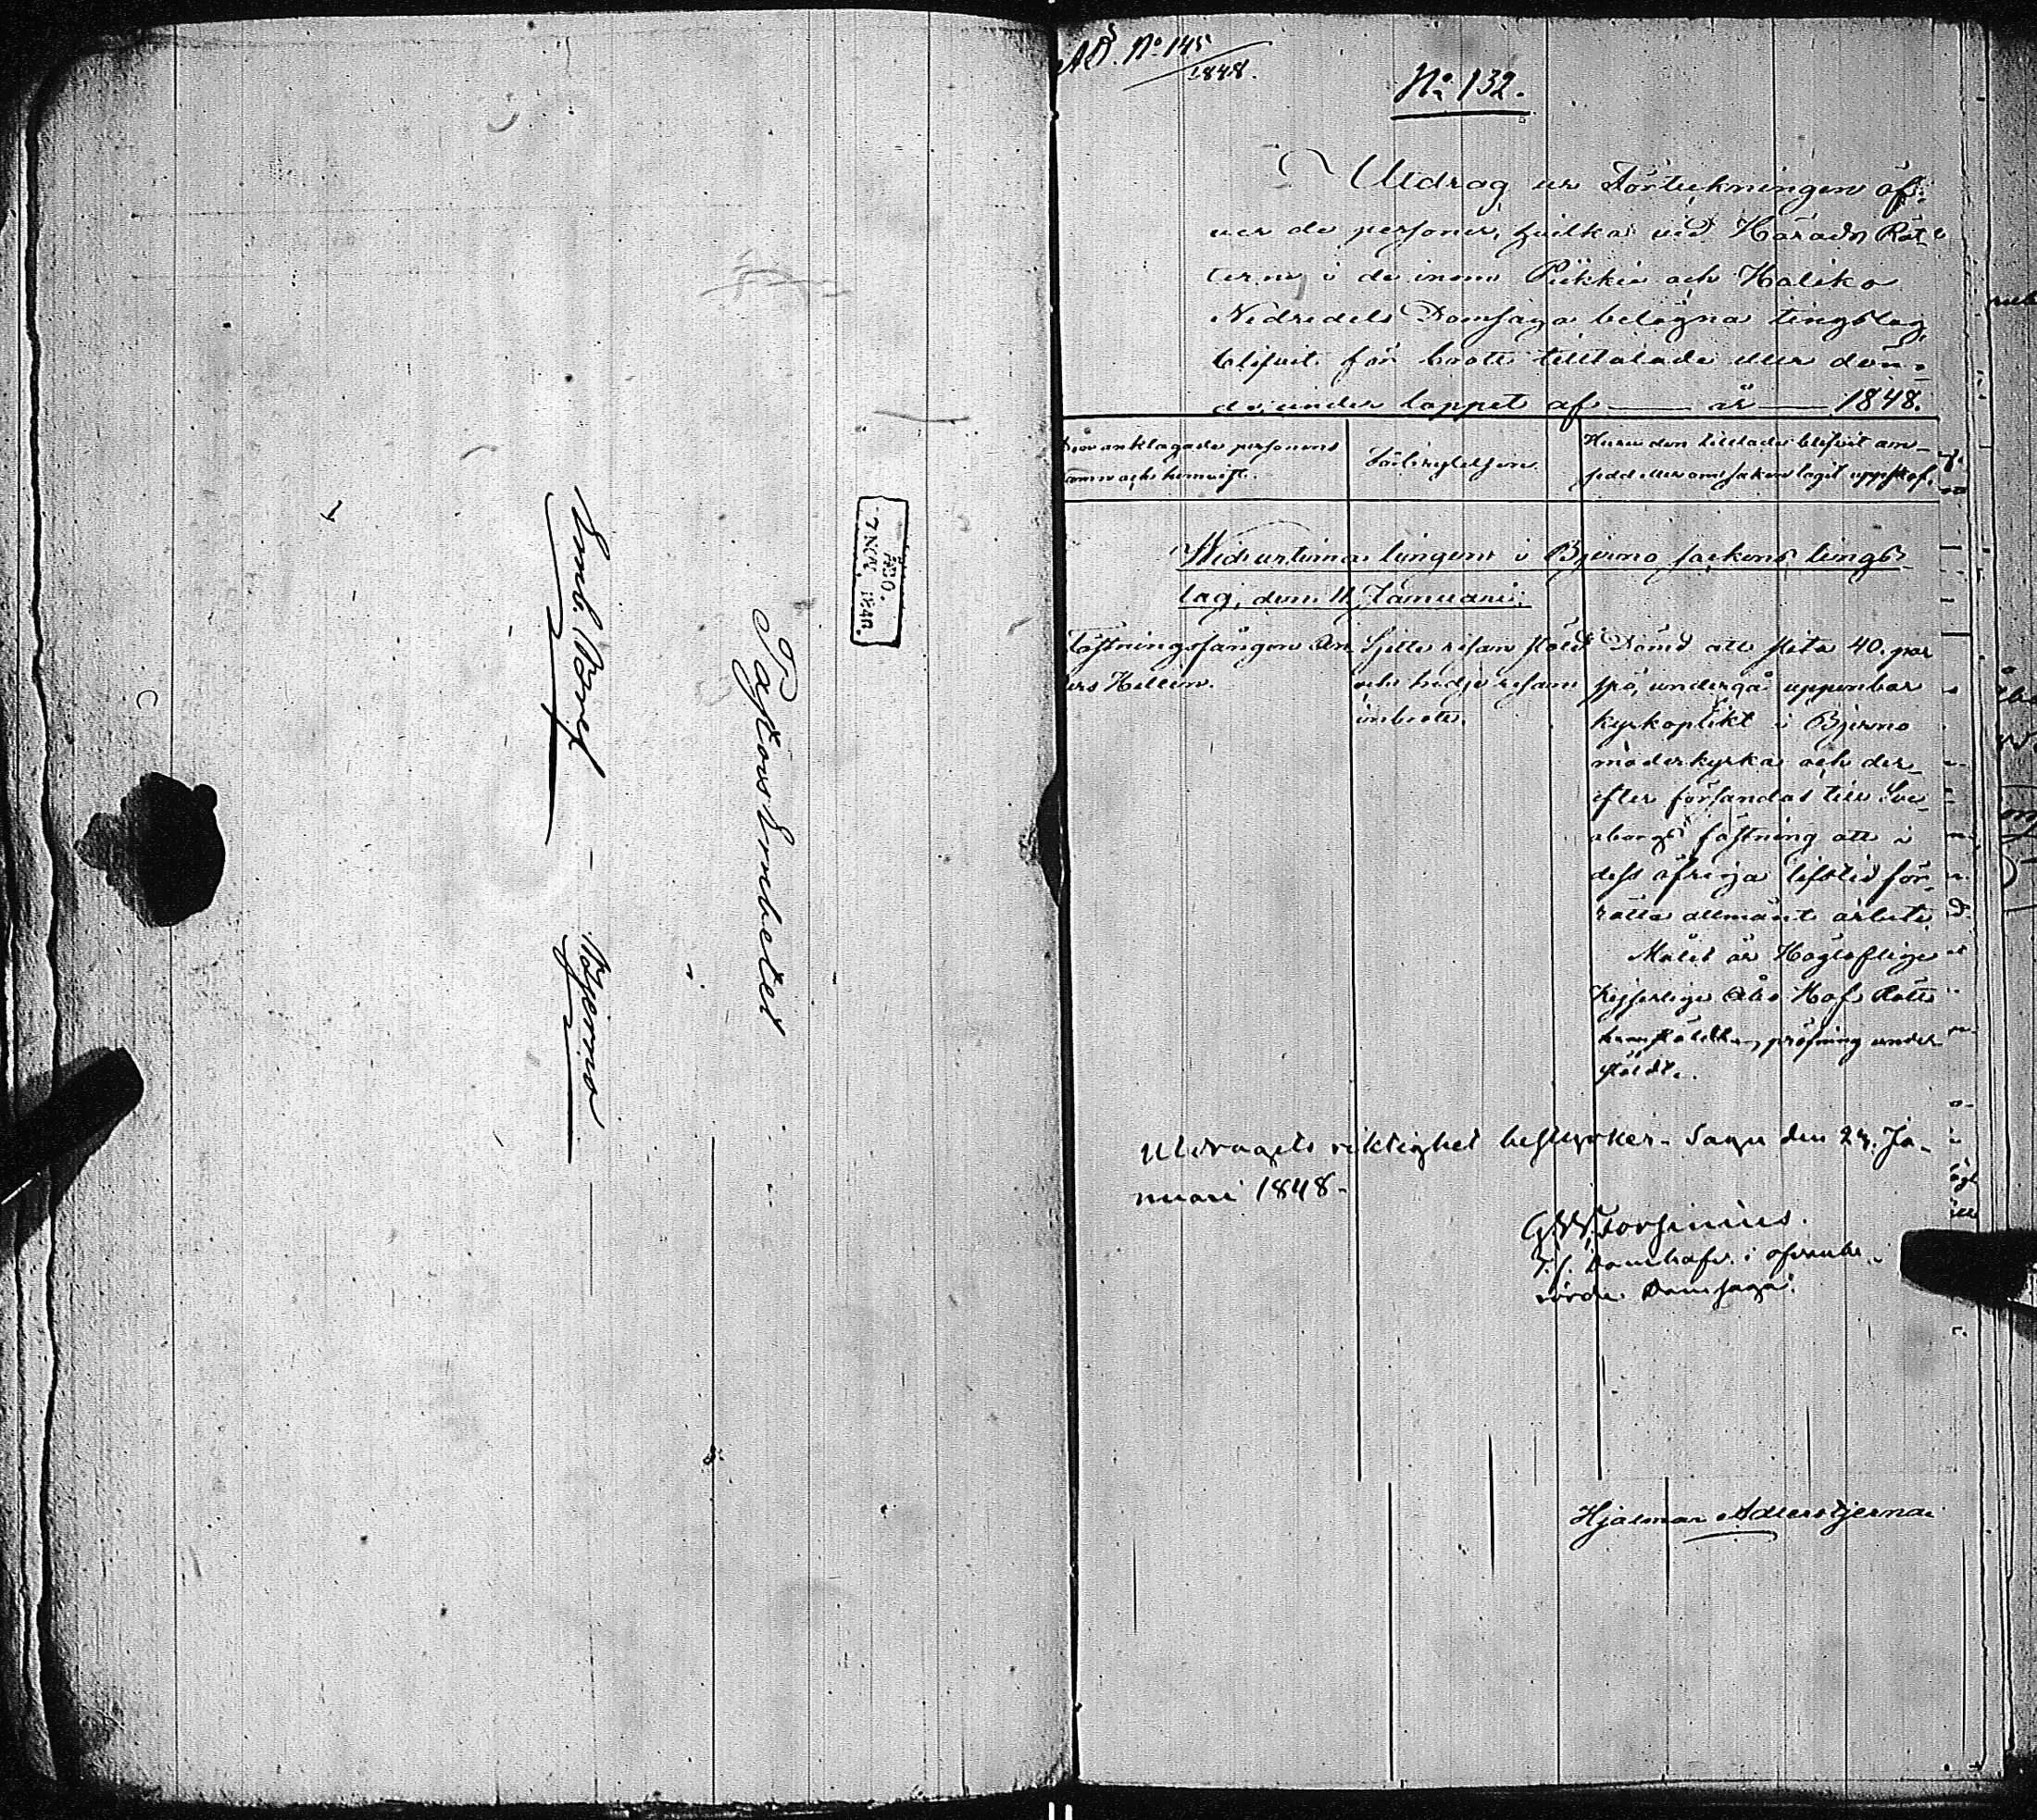 Emb. Bref — Bjerno
Pastors Embetet
ÅBO.
7 NOV. 1848.
AD. No. 145
1848.
No 132.
Utdrag ur Förtekningen öf-
ver de personer, hvilka vid Härads Rät-
terne i de inom Pickie och Haliko
Nedredels Domsaga belägna tingslag
blifvit för brott tilltalade eller döm-
de, under loppet af — år — 1848.
Den anklagade personens
namn och hemvist.
Förbrytelsen
Huru den tilltalade blifvit an-
sedd eller om saken tagit uppskof.
Wid urtima tingen i Bjerno sockens tings-
lag, den 11 Januari.
Fästningsfången An-
ders Hellen.
Sjette resan stöld
och tredje resan
inbrott.
Dömd att slita 40. par
spö, undergå uppenbar
kyrkoplikt i Bjerno
moderkyrka och der-
efter försändas till Sve-
aborgs fästning att i
dess öfriga lifstid för-
rätta allmänt arbete.
Målet är Högloflige
Kejserlige Åbo Hof Rätts
pröfning under-
stäldt.
Utdragets riktighet bestyrker. Sagu den 27. Ja-
nuari 1848.
T. f. Domhafv. i ofvanbe-
rörde Domsaga.
Hjalmar Adlerstjerna